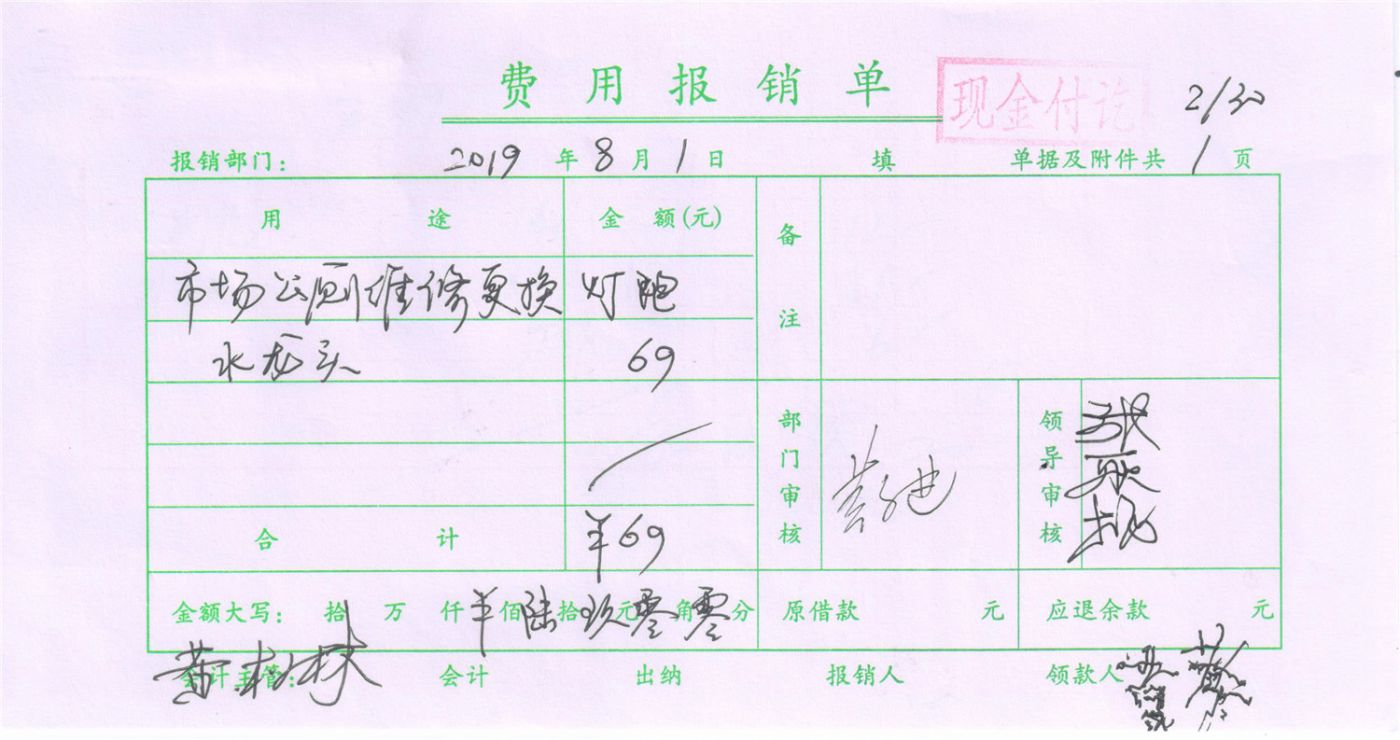 费用报销单
现金付讫
2/30
报销部门: 2019年8月1日 填 单据及附件共1页
用途 金额(元) 备注
市场公厕维修更换灯跑
水龙头 69
部门审核 领导审核
合计 ¥69
金额大写: 拾万仟¥佰陆拾玖元零角零分 原借款 元 应退余款 元
会计主管: 会计 出纳 报销人 领款人